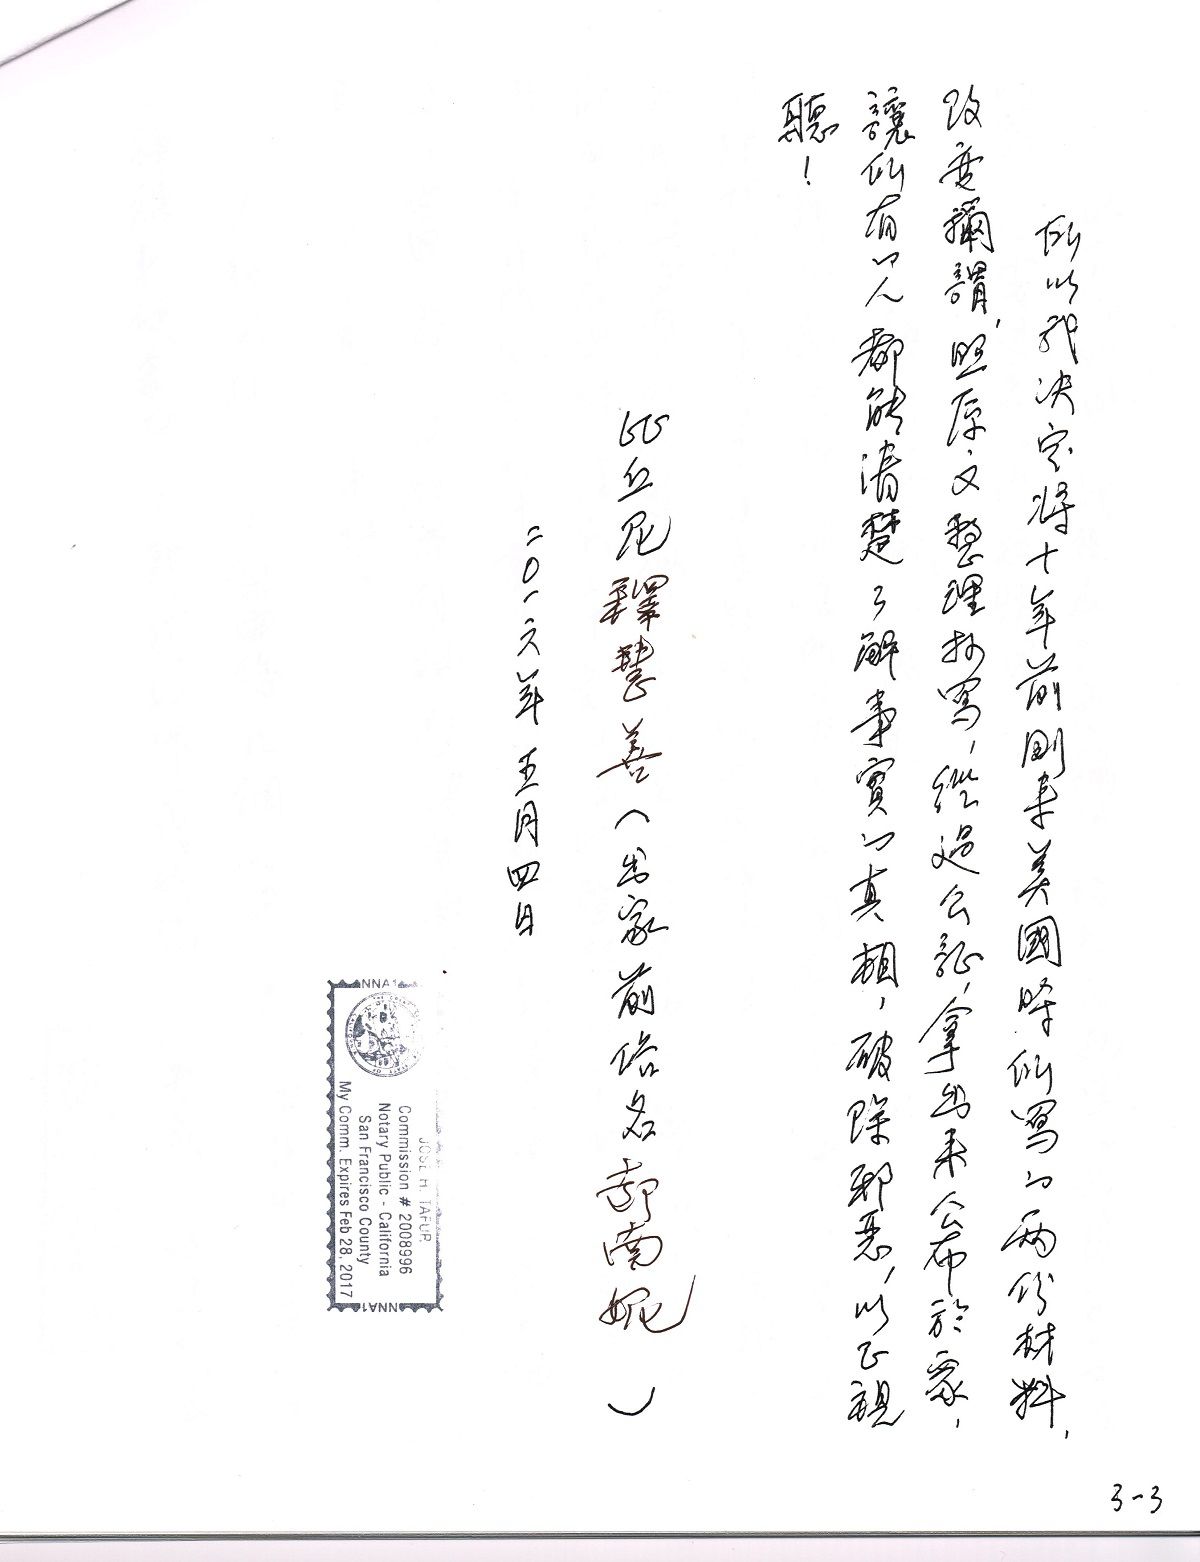 所以我决定將十年前剛來美國時所寫的两份材料，
改变稱謂，照原文整理抄寫，經過公証，拿出來公布於衆，
讓所有的人都能清楚了解事實的真相，破除邪恶，以正視
聽！
比丘尼釋慧善（出家前俗名彭南妮）
二〇一六年五月四日
NNA1
JOSE H. TAFUR
Commission # 2008996
Notary Public - California
San Francisco County
My Comm. Expires Feb 28, 2017
NNA1
3-3